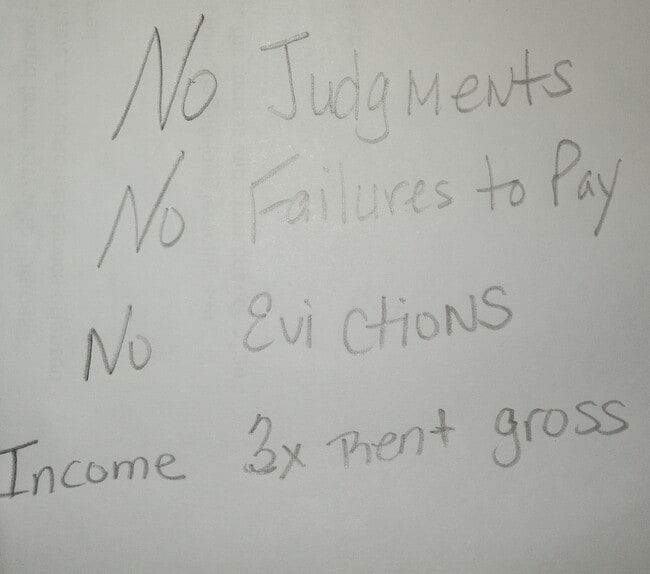 No Judgments
No Failures to Pay
No Evictions
Income 3x Rent gross